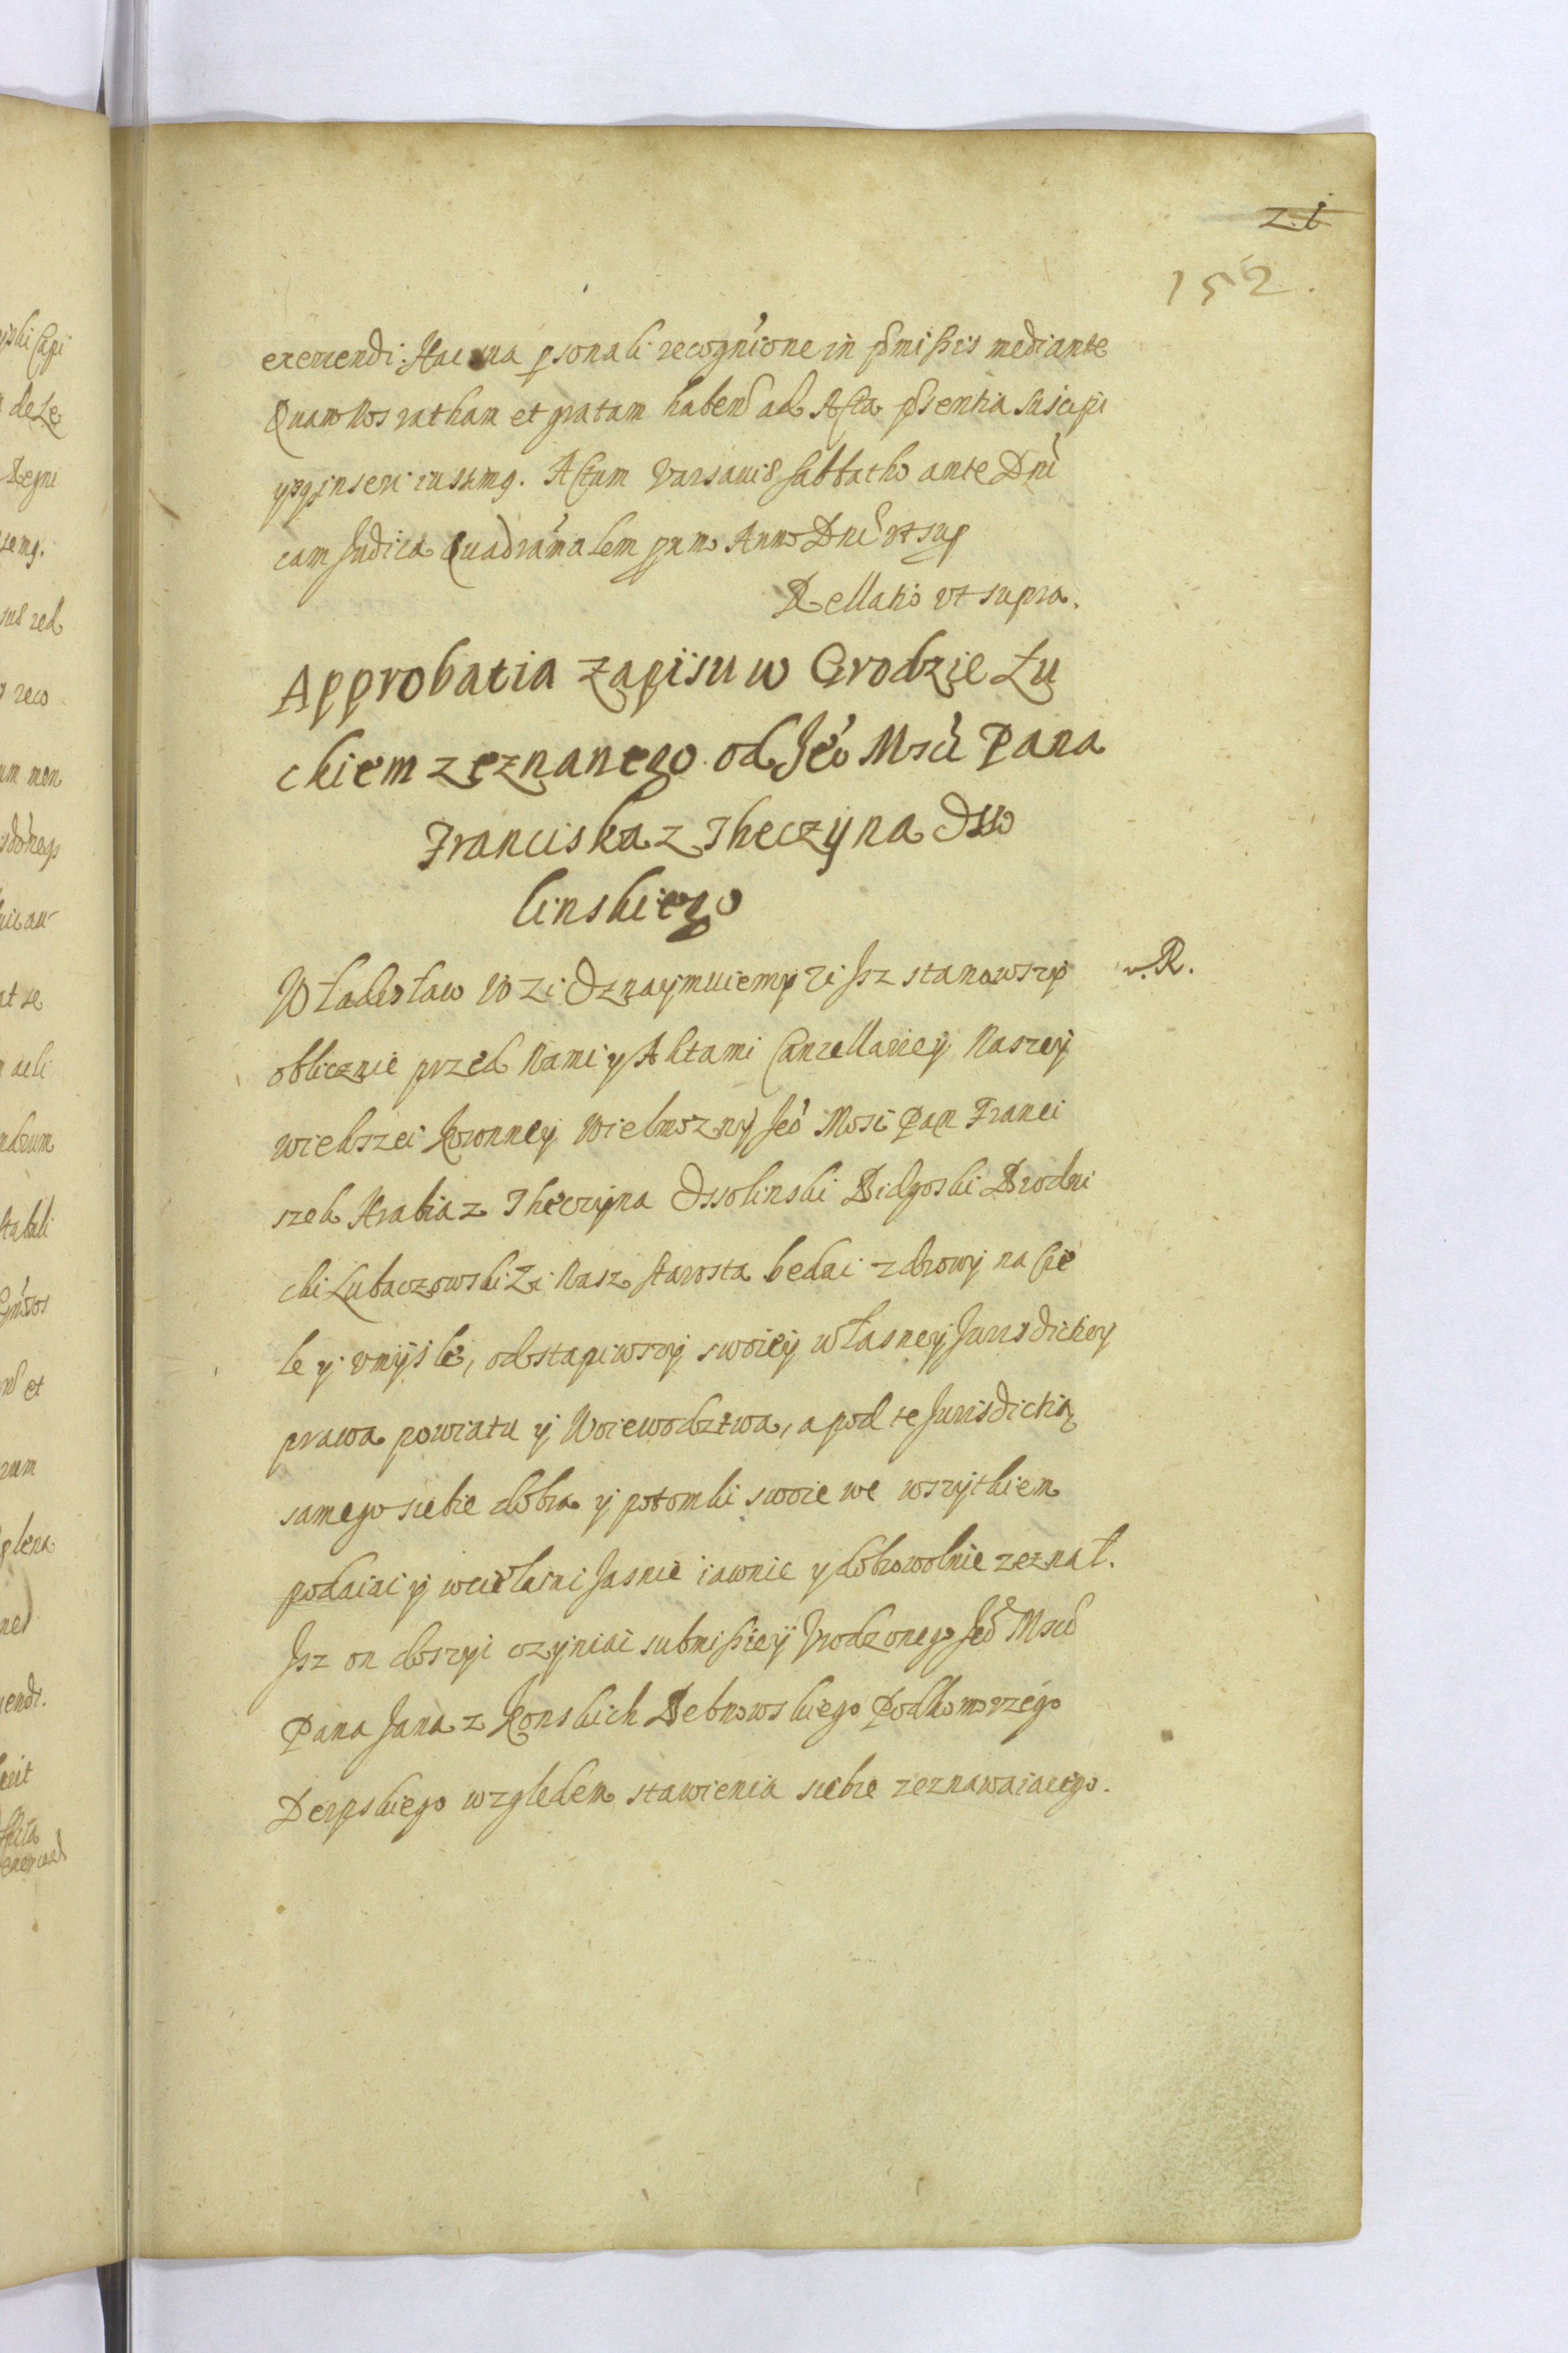 z i
152.
exercendi. Hac sua psonali recognĭone in pmissis mediante
Quam Nos ratham et gratam haben̄ ad Acta psentia suscipi
ipsq; inseri iussimq. Actum Varsaviȩ Sabbatho ante Dni
cam Judica Quadrāmalem pxm̄ Anno Dni vt sup
Rellatio vt supra.
Approbatia zapiisu w Grodzie Łu
ckiem zeznanego od Jeo Msci Pana
Franciska z Theczyna Osso
linskiego
Władisław IV Zi Oznaymuiemy Zi Jsz stanowszy
R.
obliecznie przed Nami y Aktami Cancellariey Naszey
wiekszei Koronney Wielmozny Jeo Mosci Pan Franci
szek Hrabia z Theczyna Ossolinski Bidgoski Brodni
cki Lubaczowski Zi Nasz starosta bedac zdrowy na Cie
le y vmysle, odstapiwszy swoiey własney Jurisdictiey
prawa powiatu y Woiewodztwa, a pod te Jurisdictią
samego siebie dobra y potomki swoie we wszytkiem
podaiac y wcielaiac Jasnie iawnie y dobrowolnie zeznał.
Jsz on doszyc czyniac submissiey Vrodzonego Jeo Msci
Pana Jana z Konskich Debrowskiego Podkomorzego
Derpskiego wzgledem stawienia siebie zeznawaiacego.